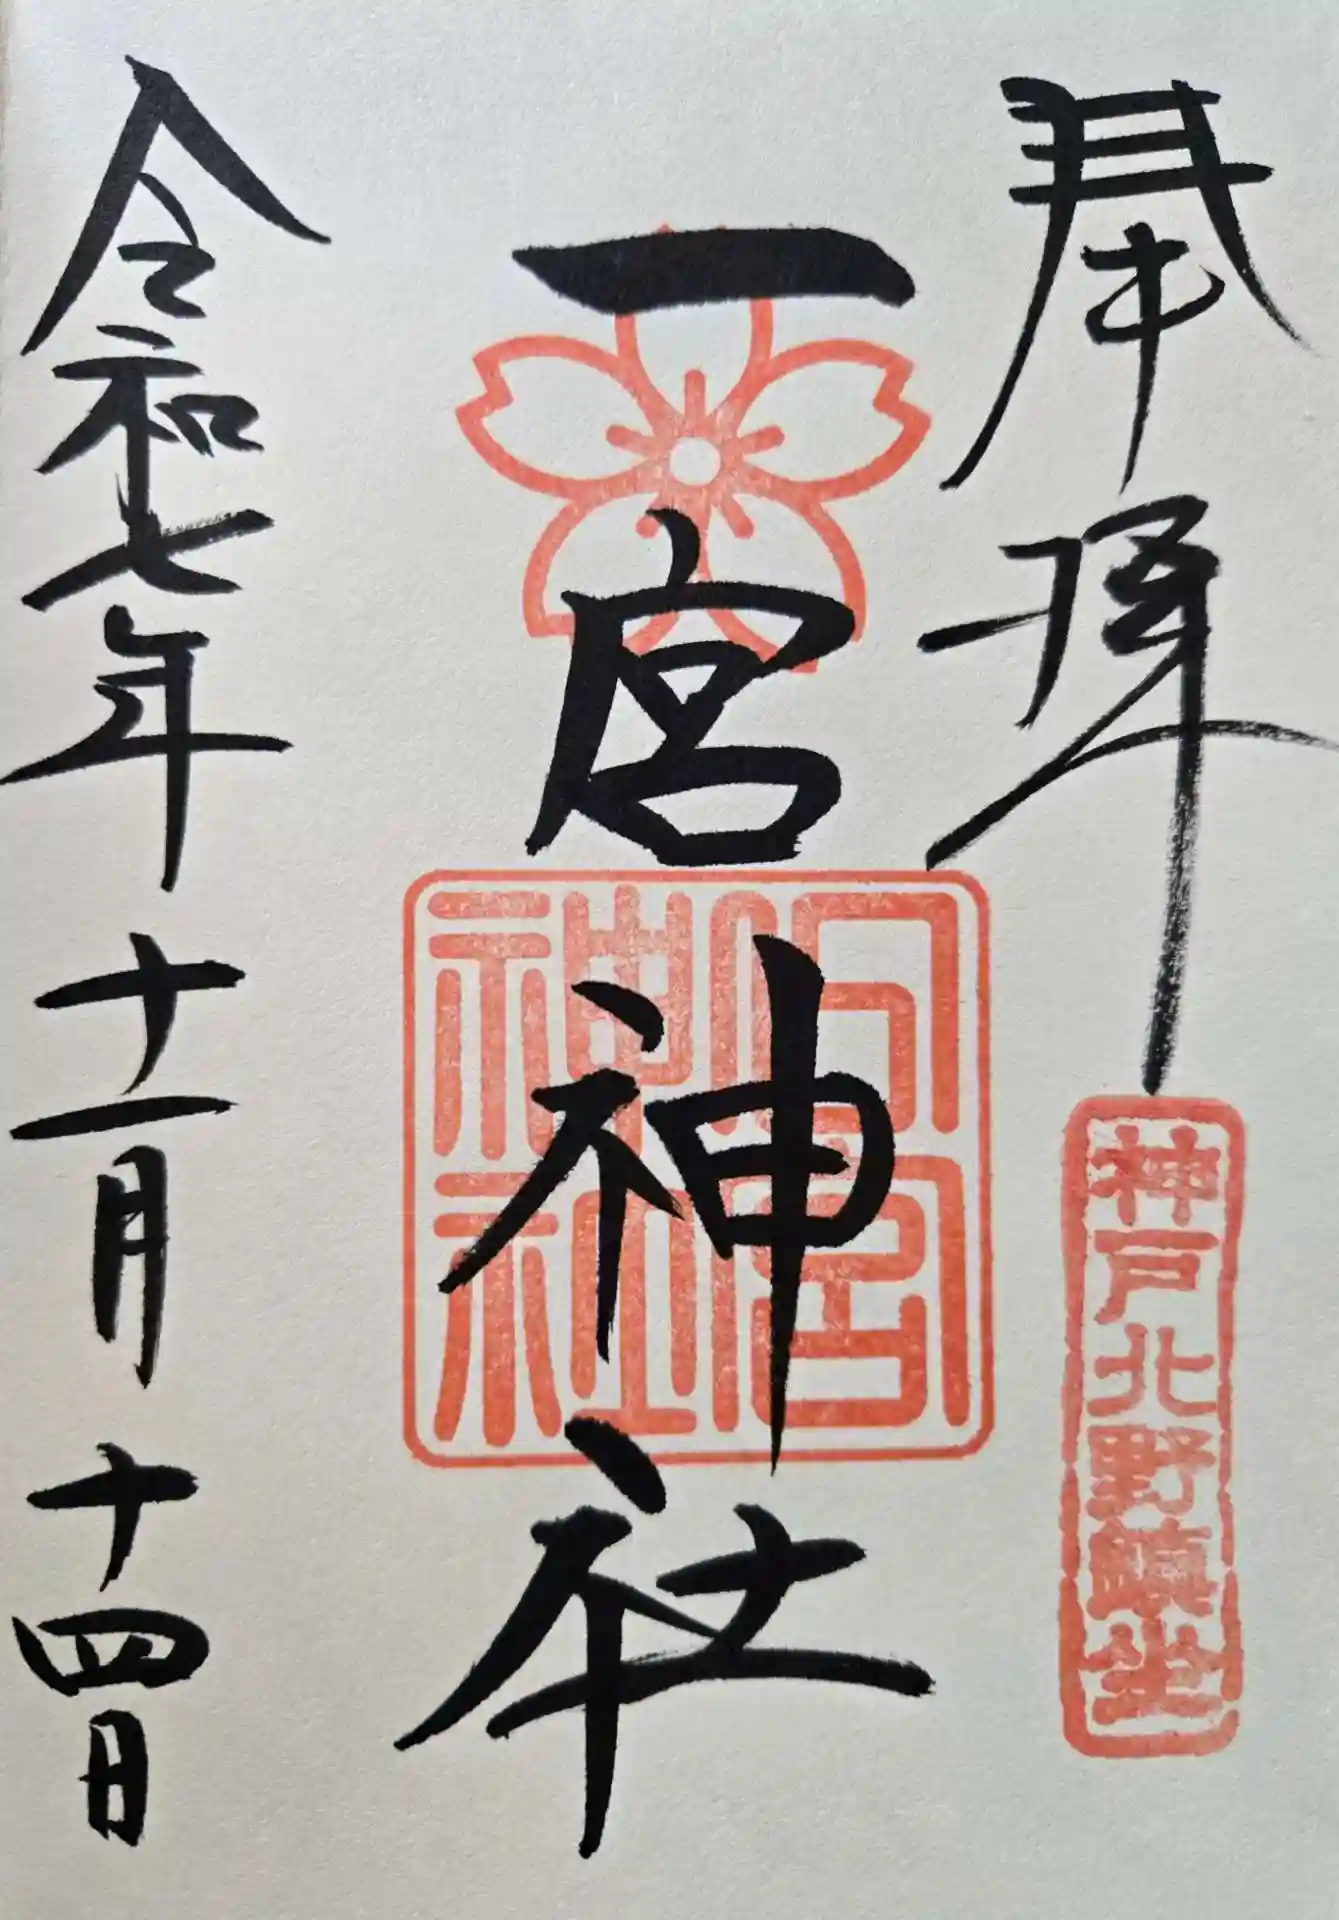 奉拝
神戸北野鎮坐
一宮神社
神社
令和七年十一月十四日